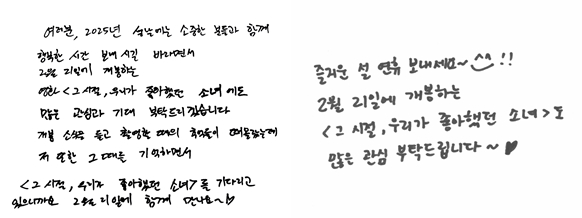 여러분, 2025년 설날에는 소중한 분들과 함께
행복한 시간 보내시길 바라면서
2월 21일에 개봉하는
영화 <그 시절, 우리가 좋아했던 소녀>에도
많은 관심과 기대 부탁드리겠습니다
개봉 소식을 듣고 촬영할 때의 추억들이 떠올랐는데
저 또한 그 때를 기억하면서
<그 시절, 우리가 좋아했던 소녀>를 기다리고
있으니까요 2월 21일에 함께 만나요~♡
즐거운 설 연휴 보내세요~ ^^ !!
2월 21일에 개봉하는
<그 시절, 우리가 좋아했던 소녀>도
많은 관심 부탁드립니다~♥